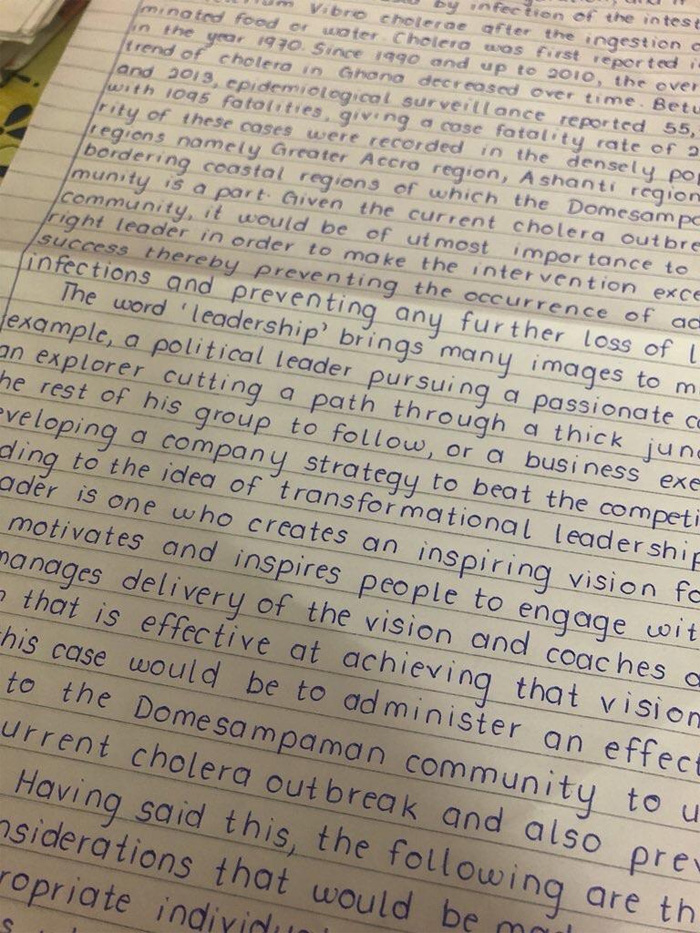 Vibrio cholerae after the ingestion
by infection of the intest
minated food or water. Cholera was first reported
in the year 1970. Since 1990 and up to 2010, the over
trend of cholera in Ghana decreased over time. Bet
and 2013, epidemiological surveillance reported 55,
with 1095 fatalities, giving a case fatality rate of 2
rity of these cases were recorded in the densely pop
regions namely Greater Accra region, Ashanti region
bordering coastal regions of which the Domesampa
munity is a part. Given the current cholera outbre
community, it would be of utmost importance to
right leader in order to make the intervention exce
success thereby preventing the occurrence of ad
infections and preventing any further loss of l
The word 'leadership' brings many images to m
example, a political leader pursuing a passionate c
an explorer cutting a path through a thick jun
he rest of his group to follow, or a business exe
veloping a company strategy to beat the competi
ding to the idea of transformational leadership
ader is one who creates an inspiring vision fo
motivates and inspires people to engage wit
manages delivery of the vision and coaches a
n that is effective at achieving that vision
his case would be to administer an effect
to the Domesampaman community to u
urrent cholera outbreak and also prev
Having said this, the following are th
nsiderations that would be mad
ropriate individu